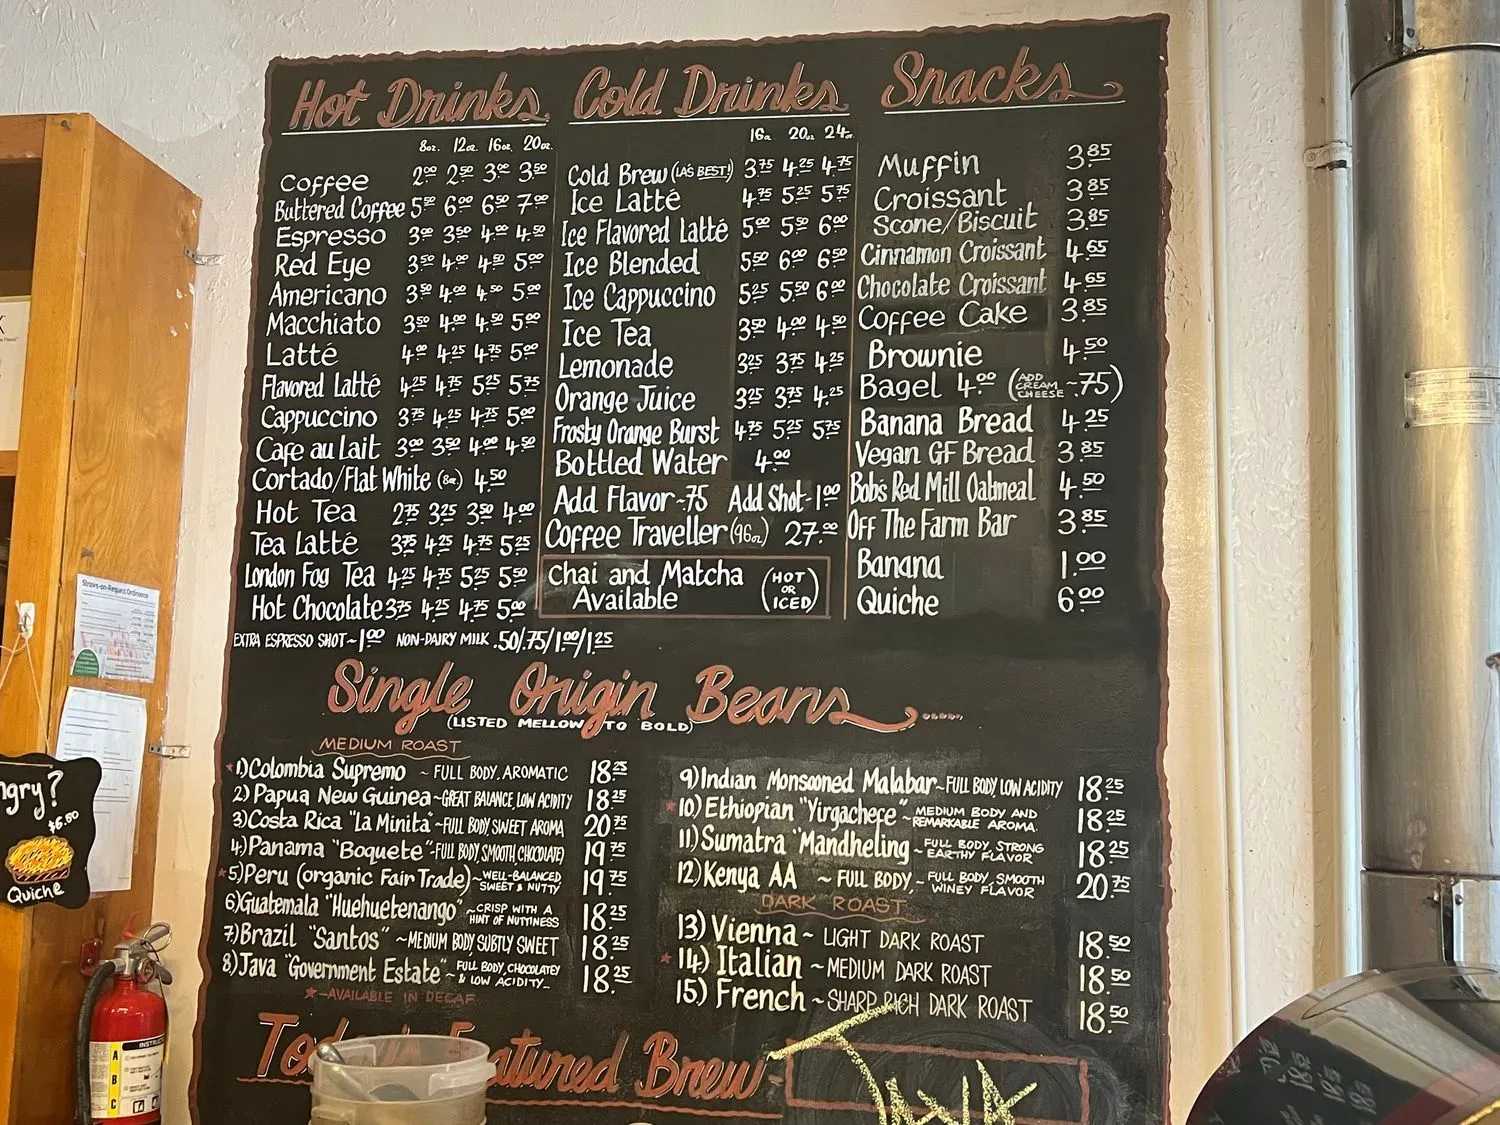 Hot Drinks
8oz. 12oz. 16oz. 20oz.
Coffee 2.00 2.50 3.00 3.50
Buttered Coffee 5.50 6.00 6.50 7.00
Espresso 3.00 3.50 4.00 4.50
Red Eye 3.50 4.00 4.50 5.00
Americano 3.50 4.00 4.50 5.00
Macchiato 3.50 4.00 4.50 5.00
Latté 4.00 4.25 4.75 5.00
Flavored Latté 4.25 4.75 5.25 5.75
Cappuccino 3.75 4.25 4.75 5.00
Cafe au Lait 3.00 3.50 4.00 4.50
Cortado/Flat White (8oz.) 4.50
Hot Tea 2.75 3.25 3.50 4.00
Tea Latté 3.75 4.25 4.75 5.25
London Fog Tea 4.25 4.75 5.25 5.50
Hot Chocolate 3.75 4.25 4.75 5.00
EXTRA ESPRESSO SHOT~1.00 NON-DAIRY MILK .50/.75/1.00/1.25
Cold Drinks
16oz. 20oz. 24oz.
Cold Brew (LA'S BEST!) 3.75 4.25 4.75
Ice Latté 4.75 5.25 5.75
Ice Flavored Latté 5.00 5.50 6.00
Ice Blended 5.50 6.00 6.50
Ice Cappuccino 5.25 5.50 6.00
Ice Tea 3.50 4.00 4.50
Lemonade 3.25 3.75 4.25
Orange Juice 3.25 3.75 4.25
Frosty Orange Burst 4.75 5.25 5.75
Bottled Water 4.00
Add Flavor~.75 Add Shot~1.00
Coffee Traveller (96oz.) 27.00
Chai and Matcha
Available
(HOT
OR
ICED)
Snacks
Muffin 3.85
Croissant 3.85
Scone/Biscuit 3.85
Cinnamon Croissant 4.65
Chocolate Croissant 4.65
Coffee Cake 3.85
Brownie 4.50
Bagel 4.00 (ADD CREAM CHEESE ~.75)
Banana Bread 4.25
Vegan GF Bread 3.85
Bob's Red Mill Oatmeal 4.50
Off The Farm Bar 3.85
Banana 1.00
Quiche 6.00
Single Origin Beans
(LISTED MELLOW TO BOLD)
MEDIUM ROAST
*1) Colombia Supremo ~ FULL BODY, AROMATIC 18.25
2) Papua New Guinea ~ GREAT BALANCE, LOW ACIDITY 18.25
3) Costa Rica "La Minita" ~ FULL BODY, SWEET AROMA 20.75
4) Panama "Boquete" ~ FULL BODY, SMOOTH, CHOCOLATEY 19.75
*5) Peru (organic Fair Trade) ~ WELL-BALANCED SWEET & NUTTY 19.75
6) Guatemala "Huehuetenango" ~ CRISP WITH A HINT OF NUTTINESS 18.25
7) Brazil "Santos" ~ MEDIUM BODY, SUBTLY SWEET 18.25
8) Java "Government Estate" ~ FULL BODY, CHOCOLATEY & LOW ACIDITY 18.25
*~AVAILABLE IN DECAF
9) Indian Monsooned Malabar ~ FULL BODY, LOW ACIDITY 18.25
*10) Ethiopian "Yirgachefe" ~ MEDIUM BODY AND REMARKABLE AROMA. 18.25
11) Sumatra "Mandheling ~ FULL BODY, STRONG EARTHY FLAVOR 18.25
12) Kenya AA ~ FULL BODY, ~ FULL BODY, SMOOTH WINEY FLAVOR 20.75
DARK ROAST
13) Vienna ~ LIGHT DARK ROAST 18.50
*14) Italian ~ MEDIUM DARK ROAST 18.50
15) French ~ SHARP RICH DARK ROAST 18.50
Featured Brew~
JAVA
Straws-on-Request Ordinance
ngry?
$6.50
Quiche
A
B
C